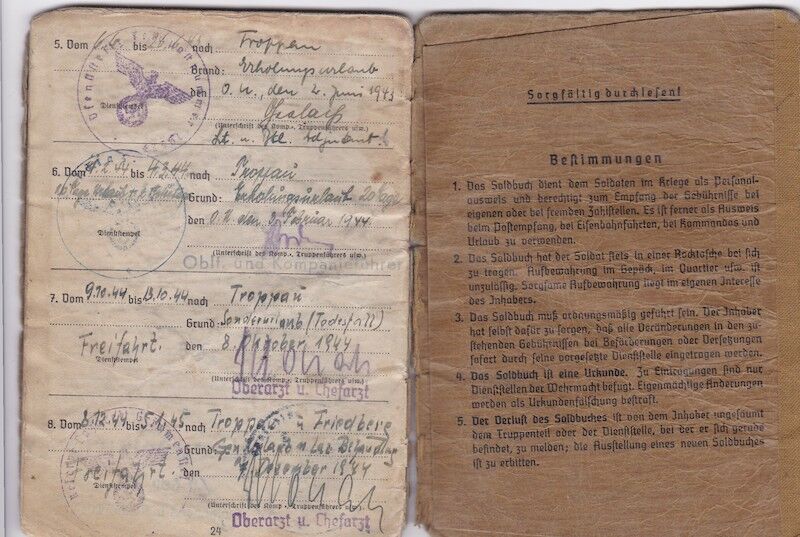 5. Vom bis nach Troppau
Grund: Erholungsurlaub
den O.U., den 2. Juni 1943
Dienststempel
(Unterschrift des Komp.-, Truppenführers usw.)
Lt. u. Adjutant
6. Vom bis nach Troppau
Grund: Erholungsurlaub 20 Tage
den O.U. den Februar 1944
Dienststempel
(Unterschrift des Komp.-, Truppenführers usw.)
Oblt. und Kompanieführer
7. Vom 9.10.44 bis 13.10.44 nach Troppau
Grund: Sonderurlaub (Todesfall)
Freifahrt. den 8. Oktober 1944
Dienststempel
(Unterschrift des Komp.-, Truppenführers usw.)
Oberarzt u. Chefarzt
8. Vom 8.12.44 bis 5.1.45 nach Troppau u. Friedberg
Grund:
Freifahrt. Dezember 1944
Dienststempel
(Unterschrift des Komp.-, Truppenführers usw.)
Oberarzt u. Chefarzt
24
Sorgfältig durchlesen!
Bestimmungen
1. Das Soldbuch dient dem Soldaten im Kriege als Personal-
ausweis und berechtigt zum Empfang der Gebührnisse bei
eigenen oder bei fremden Zahlstellen. Es ist ferner als Ausweis
beim Postempfang, bei Eisenbahnfahrten, bei Kommandos und
Urlaub zu verwenden.
2. Das Soldbuch hat der Soldat stets in einer Rocktasche bei sich
zu tragen. Aufbewahrung im Gepäck, im Quartier usw. ist
unzulässig. Sorgsame Aufbewahrung liegt im eigenen Interesse
des Inhabers.
3. Das Soldbuch muß ordnungsmäßig geführt sein. Der Inhaber
hat selbst dafür zu sorgen, daß alle Veränderungen in den zu-
stehenden Gebührnissen bei Beförderungen oder Versetzungen
sofort durch seine vorgesetzte Dienststelle eingetragen werden.
4. Das Soldbuch ist eine Urkunde. Zu Eintragungen sind nur
Dienststellen der Wehrmacht befugt. Eigenmächtige Änderungen
werden als Urkundenfälschung bestraft.
5. Der Verlust des Soldbuches ist von dem Inhaber ungesäumt
dem Truppenteil oder der Dienststelle, bei der er sich gerade
befindet, zu melden; die Ausstellung eines neuen Soldbuches
ist zu erbitten.